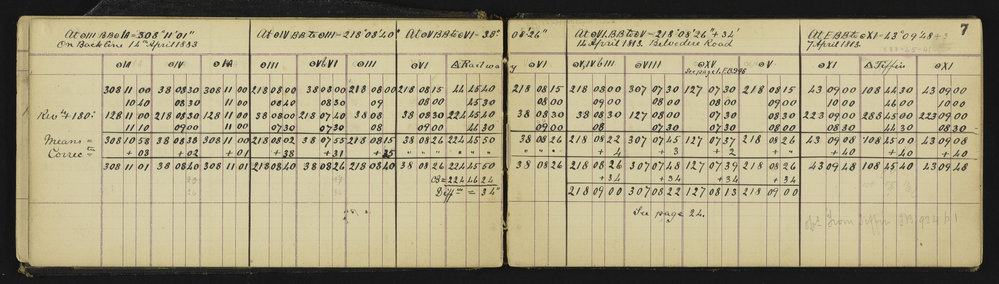 At ⊙III BB⊙IA = 308° 11' 01"
On Back line 14th April 1883
At ⊙IV BB to ⊙III = 218° 08' 40"
At ⊙VI BB to ⊙VI = 38° 08' 26"
At ⊙VI, BB to ⊙V = 218° 08' 26" + 34'
14 April 1883. Belvedere Road
At F. BB to ⊙XI = 43° 09' 48" + 3
7 April 1883.
7
⊙IA ⊙IV ⊙IA ⊙III ⊙VbVI ⊙III ⊙VI Δ Railway ⊙VI ⊙V,IVbIII ⊙VIII ⊙XV ⊙V ⊙XI Δ Tiffin ⊙XI
See page 1, F.B. 948
308 11 00 38 08 30 308 11 00 218 08 00 38 08 00 218 08 00 218 08 15 44 45 40 218 08 15 218 08 00 307 07 30 127 07 30 218 08 15 43 09 00 108 44 30 43 09 00
10 40 08 30 11 00 08 40 08 30 09 08 00 45 30 08 00 09 00 08 00 08 00 08 00 10 00 46 00 10 00
Revd 180° 128 11 00 218 08 30 128 11 00 38 08 00 218 07 40 38 08 38 08 30 224 45 40 38 08 30 38 08 30 127 08 00 307 07 30 38 08 30 223 09 00 288 45 00 223 09 00
11 10 09 00 11 00 07 30 07 30 08 09 00 46 30 09 00 08 07 30 07 30 09 00 08 30 44 30 08 30
Means = 308 10 58 38 08 38 308 11 00 218 08 02 38 07 55 218 08 15 38 08 26 224 45 50 38 08 26 218 08 22 307 07 45 127 07 37 218 08 26 43 09 08 108 45 00 43 09 08
Correc = + 03 + 02 + 01 + 38 + 31 + 25 " " " " " " " " " + 4 + 3 + 2 " " " + 40 + 40 + 40
308 11 01 38 08 40 308 11 01 218 08 40 38 08 26 218 08 40 38 08 26 224 45 50 38 08 26 218 08 26 307 07 48 127 07 39 218 08 26 43 09 48 108 45 40 43 09 48
CB = 224 46 24 + 34 + 34 + 34 + 34
Diffce = 34" 218 09 00 307 08 22 127 08 13 218 09 00
See page 24.